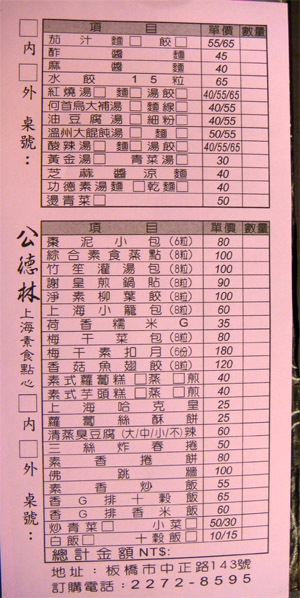 □內 □外 桌號：
項目 單價 數量
茄汁麵□ 餃□ 55/65
酢醬麵 45
麻醬麵 40
水餃15粒 65
紅燒湯□ 麵□ 湯餃□ 40/55/65
何首烏大補湯□ 麵線□ 40/55
油豆腐湯□ 細粉□ 40/55
溫州大餛飩湯□ 麵□ 50/55
酸辣湯□ 麵□ 湯餃□ 40/55/65
黃金湯□ 青菜湯□ 30
芝麻醬涼麵 40
功德素湯麵□ 乾麵□ 40
燙青菜□ 50
公德林 上海素食點心
□內 □外 桌號：
項目 單價 數量
棗泥小包(6粒) 80
綜合素食蒸點(8粒) 100
竹笙灌湯包(8粒) 100
謝皇煎鍋貼(8粒) 90
淨素柳葉餃(8粒) 100
上海小籠包(8粒) 60
荷香糯米G 35
梅干菜包(8粒) 80
梅干素扣月(6份) 180
香菇魚翅餃(8粒) 120
素式蘿蔔糕□蒸□煎 40
素式芋頭糕□蒸□煎 40
上海哈克皇 25
蘿蔔絲酥餅 25
清蒸臭豆腐(大/中/小/不)辣 60
三絲炸春捲 50
素香捲餅 80
佛跳牆 100
素香炒飯 55
香G排十穀飯 65
香G排香米飯 60
炒青菜□ 小菜□ 50/30
白飯□ 十穀飯□ 10/15
總計金額NT$:
地址：板橋市中正路143號
訂購電話：2272-8595